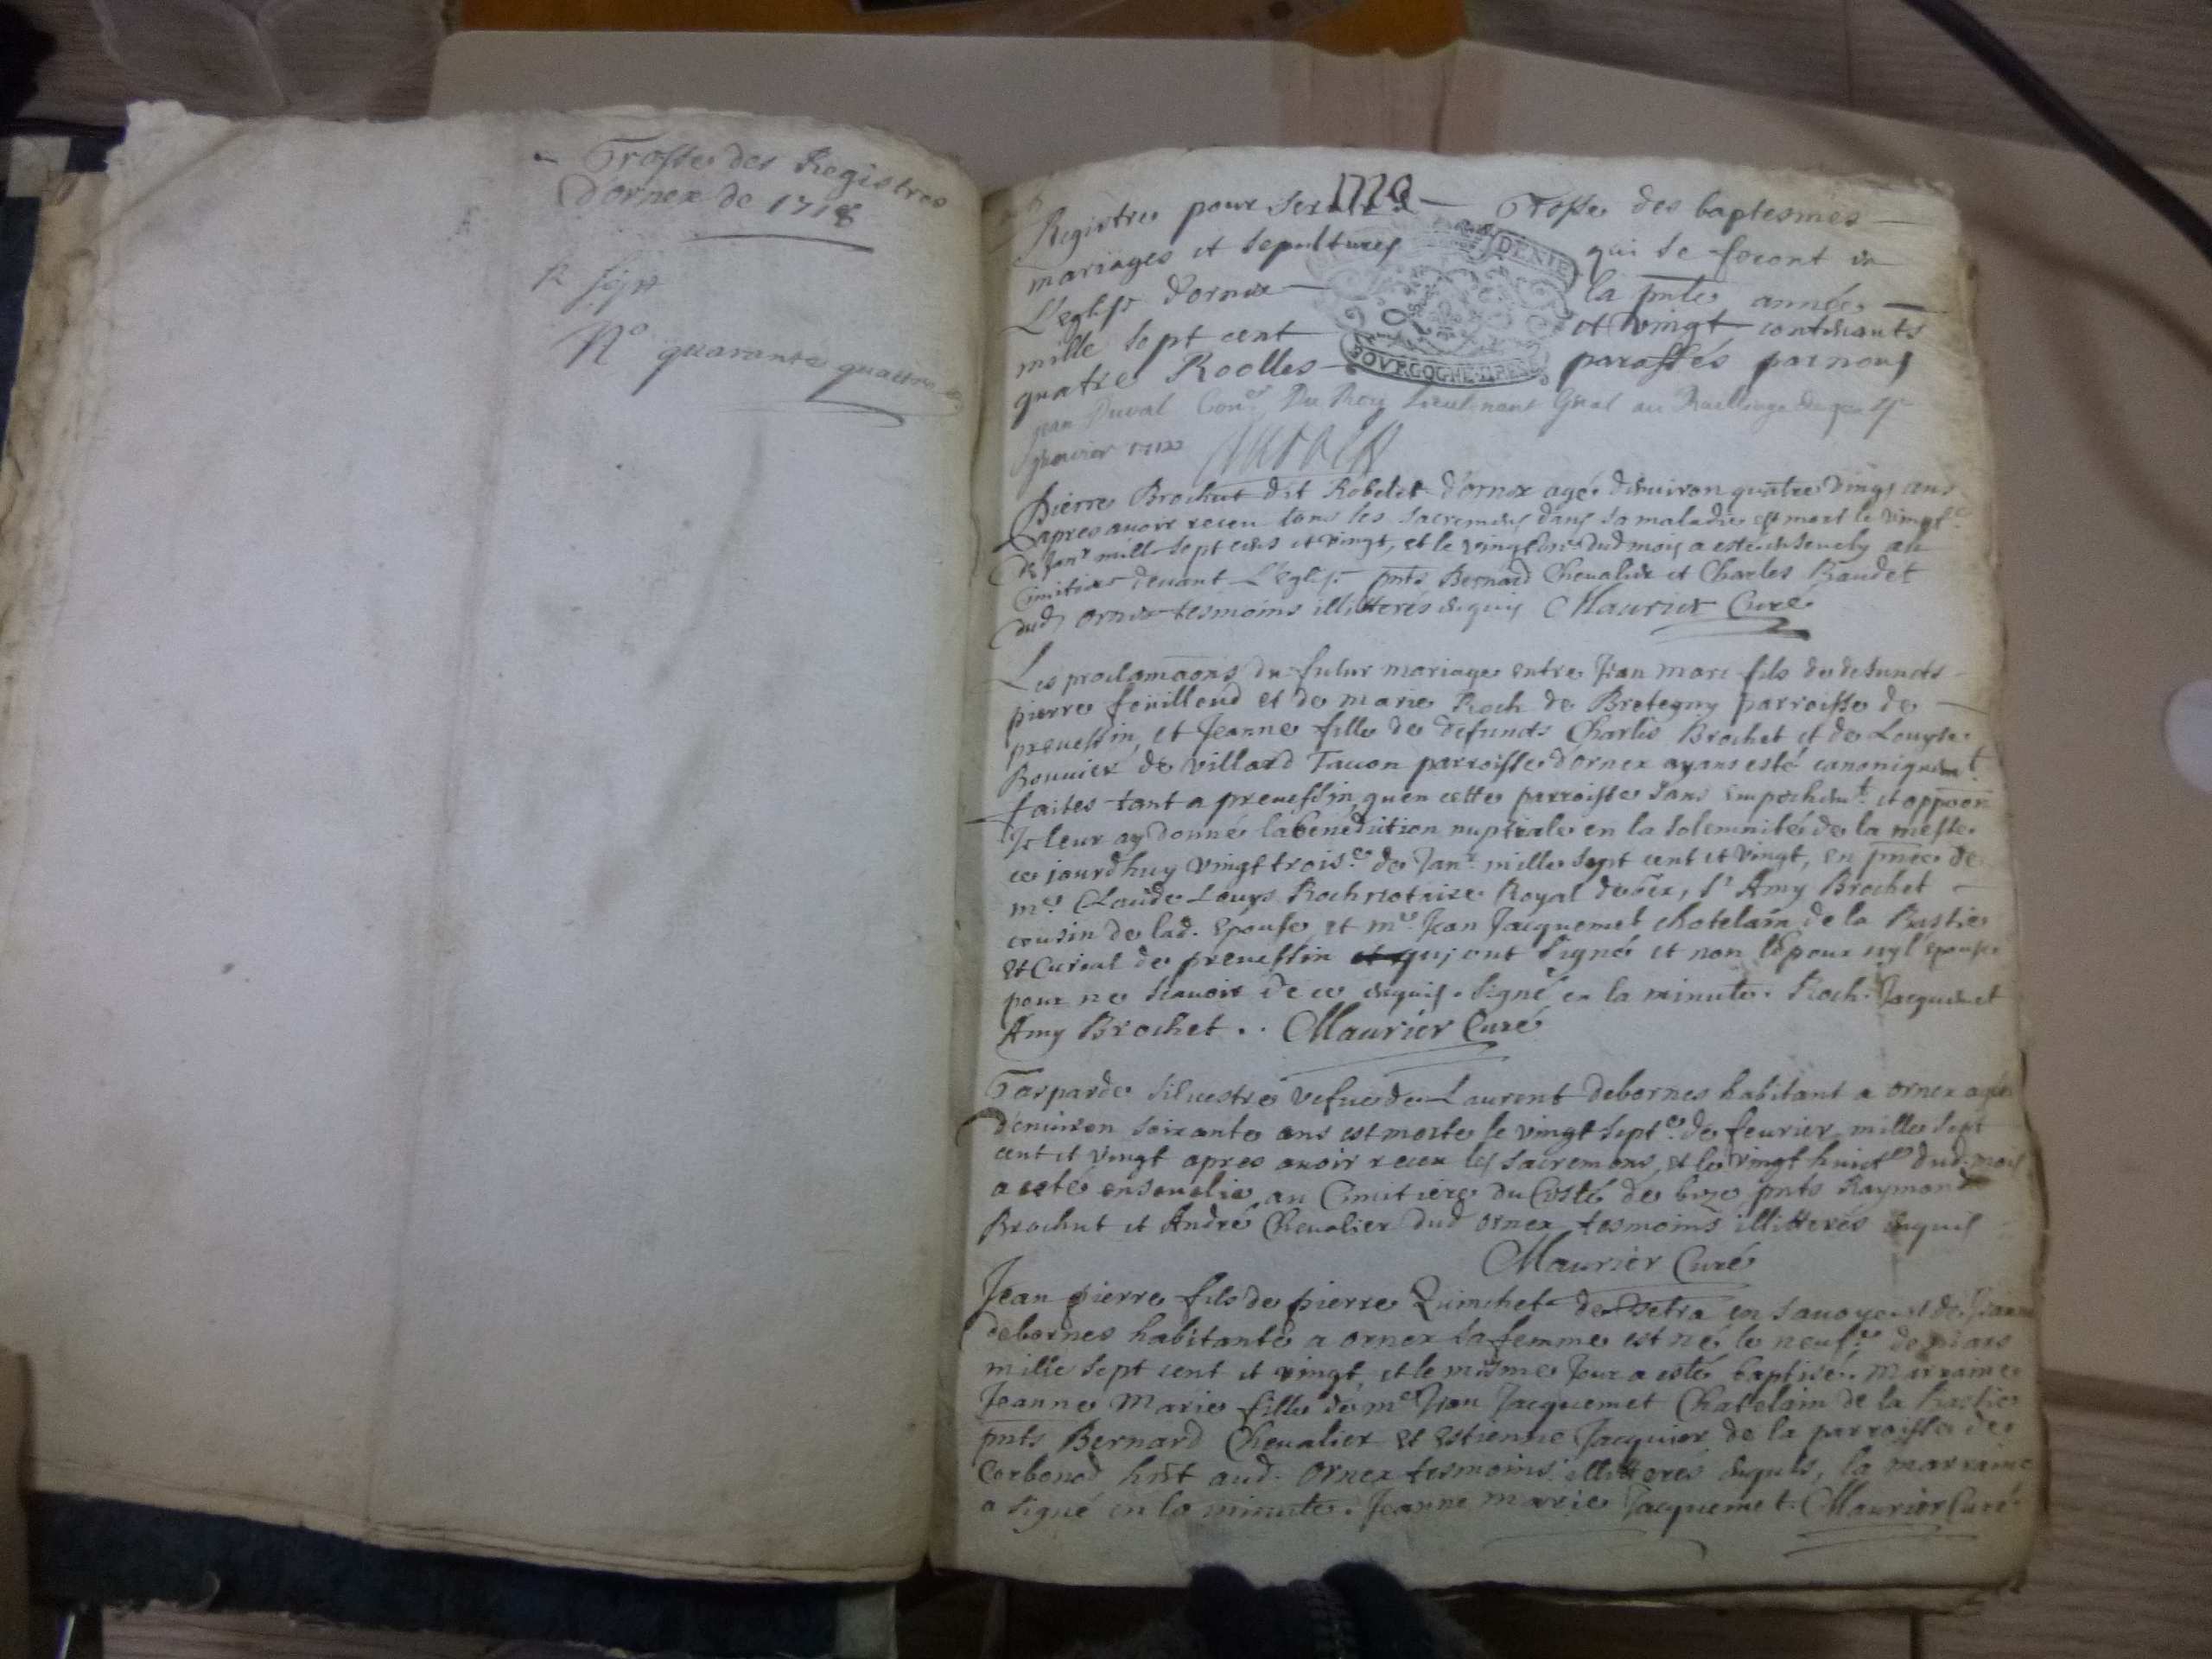 Grosse des Registres
d'ornex de 1718
N° quarante quatre
1720
Registre pour servir de Grosse des baptesmes
mariages et sepultures qui se feront en
L'eglise d'ornex la pnte année
mille sept cent et vingt contenants
quatre Roolles paraffés par nous
Jean Duval Con.er Du Roy Lieutenant Gnal au Bailliage
Janvier 1720
BOVRGOGNE BRESSE
Pierre Brochut dit Robelet d'ornex agé d'environ quatre vings ans
apres avoir receu tous les sacremens dans sa maladie est mort le vingt.e
de Janr mill sept cens et vingt, et le vingt dud mois a esté ensevely au
Cimitiere devant L'eglise pnts Bernard Chevalier et Charles Baudet
dud ornex tesmoins illitterés enquis Maurier Curé
Les proclamaons du futur mariage entre Jean Marc fils de defuncts
pierre fouilloud et de marie Roch de Bretegny parroisse de
prevessin, et Jeanne fille de defuncts Charles Brochet et de Louyse
Bouvier de villard Tacon parroisse d'ornex ayans esté canoniquemt
faites tant a prevessin, qu'en cette parroisse sans empechemt et oppoon
Je leur ay donné la benediction nuptiale en la solemnité de la messe
ce jourdhuy vingt trois.e de Janr mille sept cent et vingt, en pnce de
m.e Claude Louys Roch notaire Royal de Gex, Sr Amy Brochet
cousin de lad. Epouse, et m.e Jean Jacquemet chatelain de la Bastie
et Curial de prevessin qui ont signé et non l'epoux ny l'epouse
pour ne scavoir de ce enquis. Signé en la minute. Roch. Jacquemet
Amy Brochet .. Maurier Curé
Gasparde Silvestre vefve de Laurent debornes habitant a ornex agée
d'environ soixante ans est morte le vingt sept.e de fevrier mille sept
cent et vingt apres avoir receu les sacremens, et le vingt huict.e dud. mois
a esté ensevelie au Cimitiere du Costé de bize pnts Raymond
Brochut et André Chevalier dud ornex tesmoins illitterés enquis
Maurier Curé
Jean pierre fils de pierre Quimchet de en savoye et de Jeanne
debornes habitante a ornex sa femme est né le neuf.e de mars
mille sept cent et vingt, et le mesme Jour a esté baptisé. Marraine
Jeanne Marie fille de m.e Jean Jacquemet Chatelain de la Bastie
pnts Bernard Chevalier et Estienne Jacquier de la parroisse de
Corbonod hant aud. ornex tesmoins illitterés enquis, la marraine
a signé en la minute. Jeanne marie Jacquemet. Maurier Curé